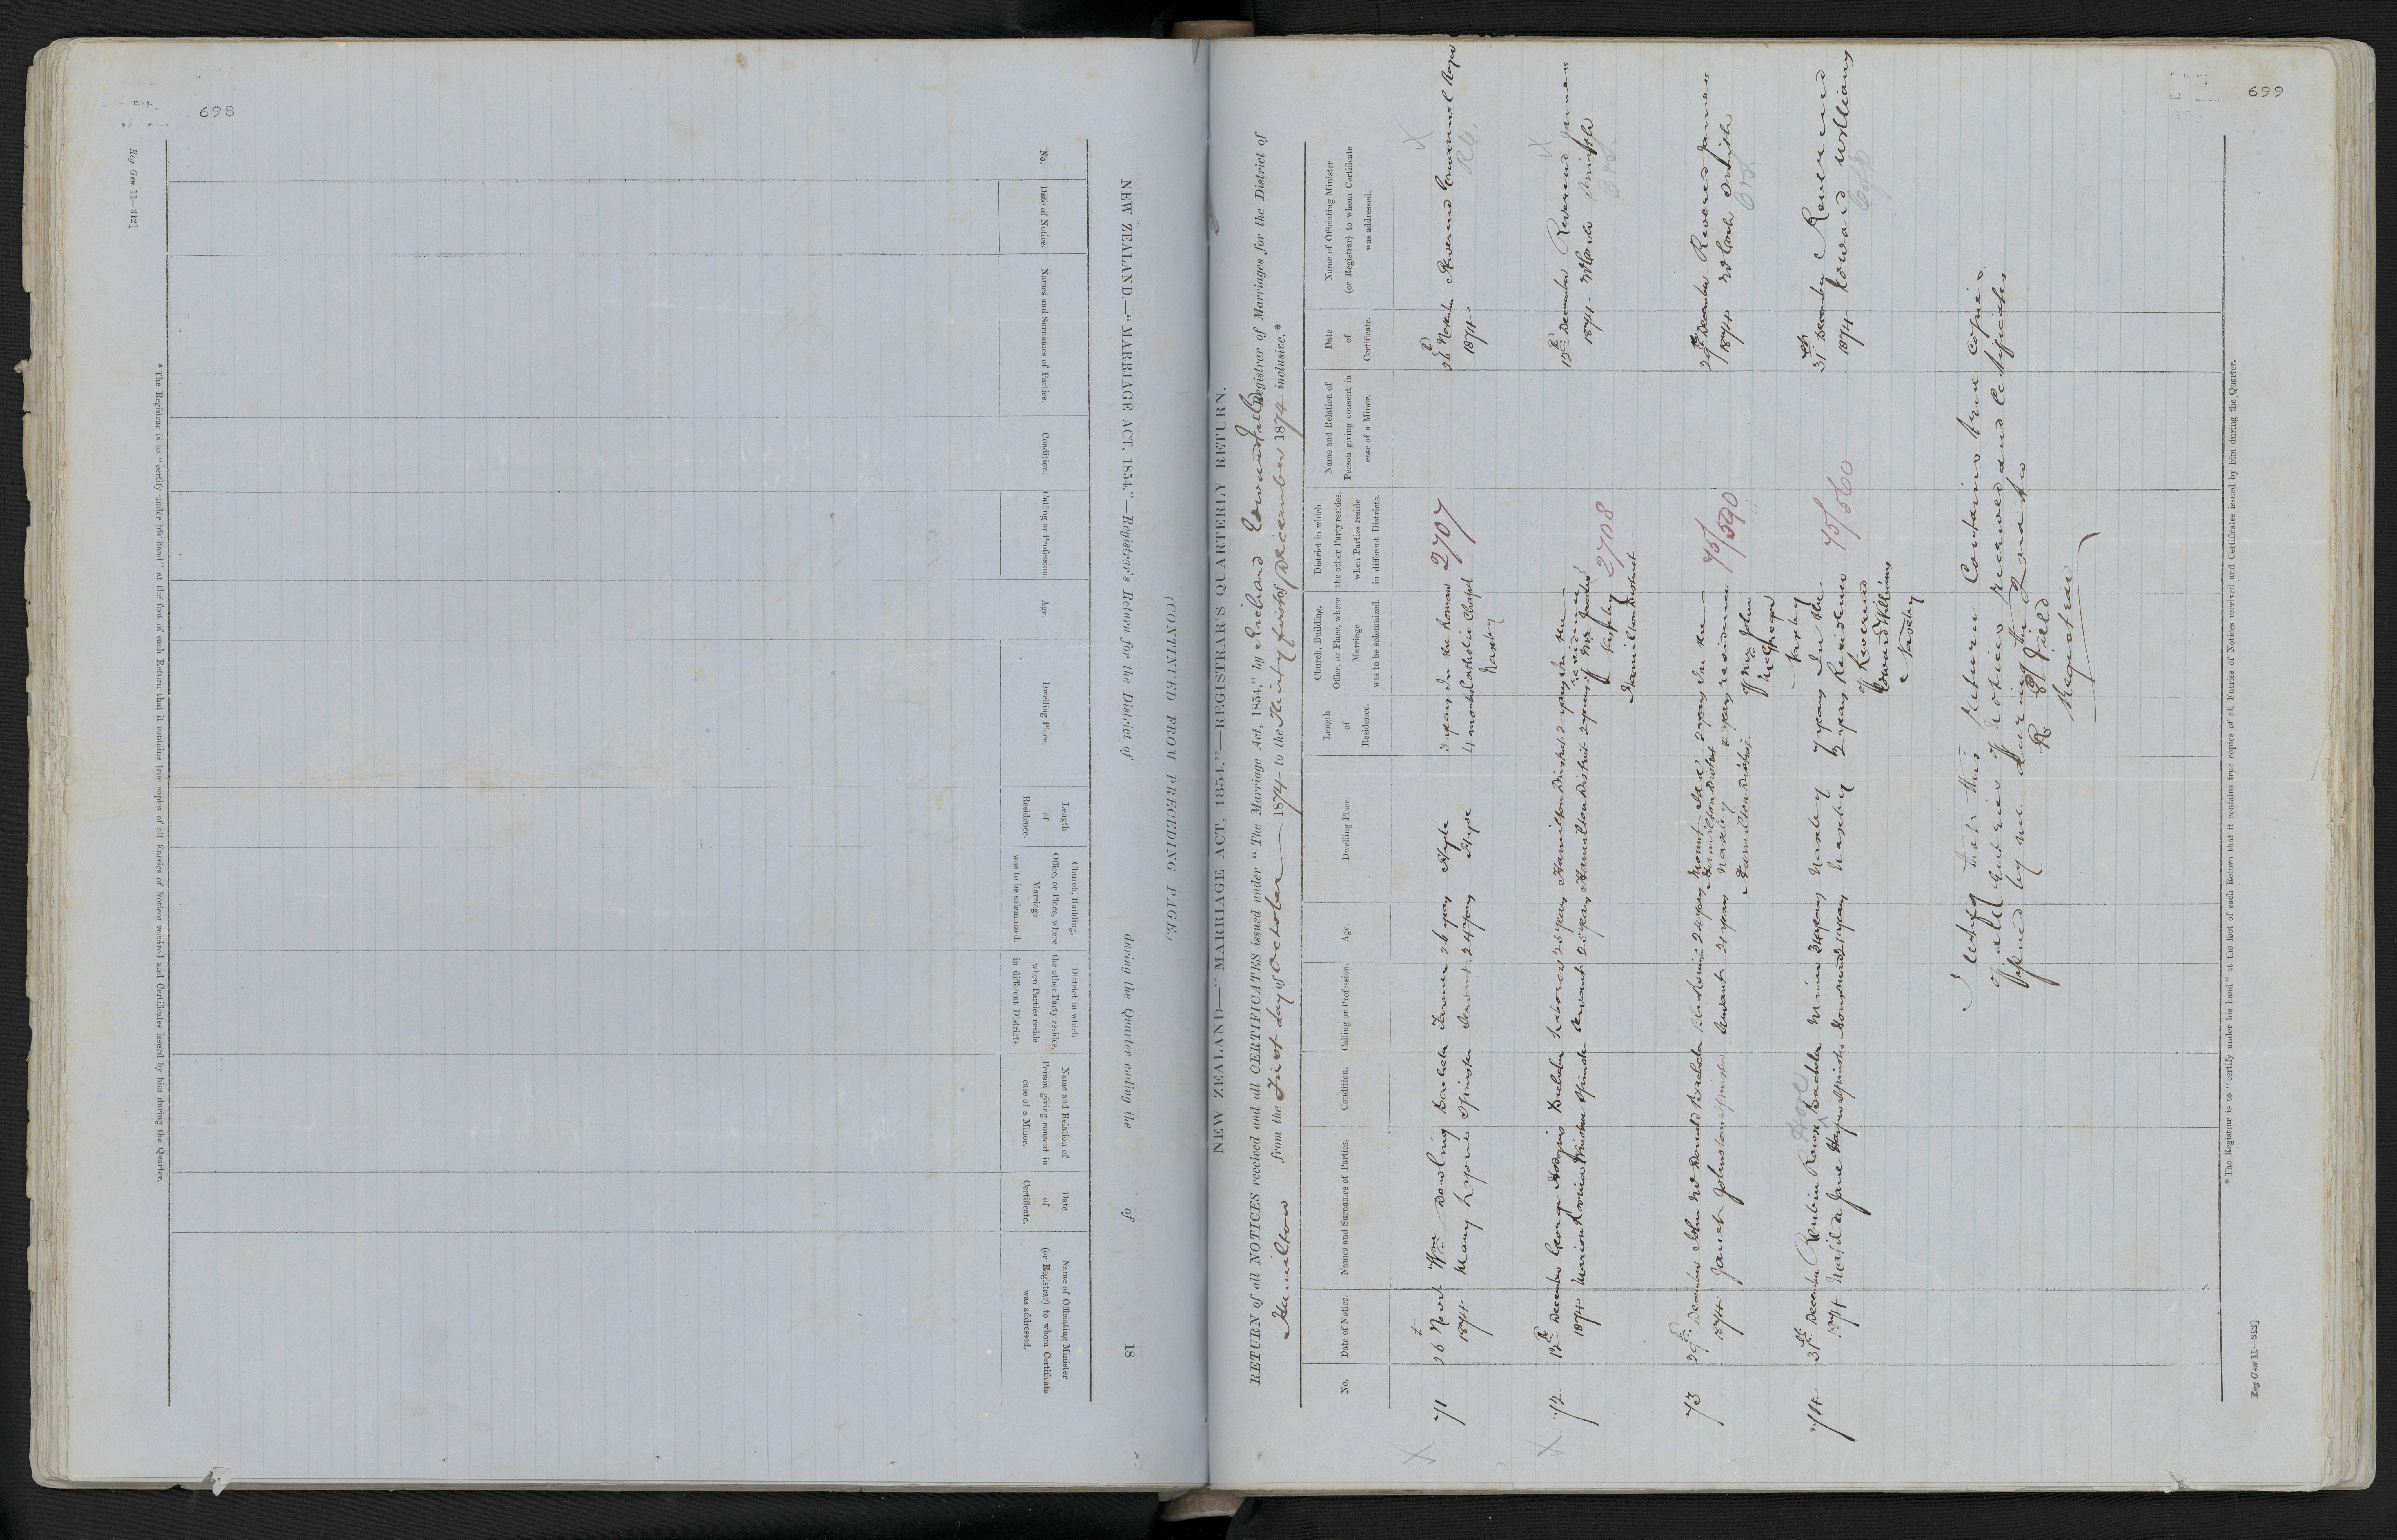 698
Reg Gen 11—312]
NEW ZEALAND.—"MARRIAGE ACT, 1854."—Registrar's Return for the District of during the Quarter ending the of 18
(CONTINUED FROM PRECEDING PAGE.)
No.
Date of Notice.
Names and Surnames of Parties.
Condition.
Calling or Profession.
Age.
Dwelling Place.
Length of Residence.
Church, Building, Office, or Place, where Marriage was to be solemnized.
District in which the other Party resides, when Parties reside in different Districts.
Name and Relation of Person giving consent in case of a Minor.
Date of Certificate.
Name of Officiating Minister (or Registrar) to whom Certificate was addressed.
*The Registrar is to "certify under his hand" at the foot of each Return that it contains true copies of all Entries of Notices received and Certificates issued by him during the Quarter.
699
NEW ZEALAND—"MARRIAGE ACT, 1854."—REGISTRAR'S QUARTERLY RETURN.
RETURN of all NOTICES received and all CERTIFICATES issued under "The Marriage Act, 1854," by Richard Edward Field Registrar of Marriages for the District of
Hamilton from the First day of October 1874 to the Thirty first of December 1874 inclusive.*
No.
Date of Notice.
Names and Surnames of Parties.
Condition.
Calling or Profession.
Age.
Dwelling Place.
Length of Residence.
Church, Building, Office, or Place, where Marriage was to be solemnized.
District in which the other Party resides, when Parties reside in different Districts.
Name and Relation of Person giving consent in case of a Minor.
Date of Certificate.
Name of Officiating Minister (or Registrar) to whom Certificate was addressed.
X 71 26 Novr Wm Dowling Bachelor Farmer 26 years Hyde 3 years In the Roman 2707 26 Novber Reverend Emmanuel Royer X
1874 Mary Lyons Spinster Servant 24 years Hyde 4 months Catholic Chapel 1874 R.C.
Naseby
X 72 12th December George Hodgins Bachelor Laborer 25 years Hamilton District 2 years In the 2708 12th December Reverend James X
1874 Marion Spinster Servant 25 years Hamilton District 2 years residence 1874 McCosh Smith
of Mr
Naseby
Hamilton District
73 29th December John McDonald Bachelor Blacksmith 24 years Mount Ida 2 years In the 75/590 29th December Reverend James
Hamilton District
1874 Janet Johnston Spinster Servant 21 years Naseby 2 years residence 1874 McCosh Smith
Hamilton District of Mr John
McGregor
Naseby
74 31st December Reubin Rowe Bachelor Miner years Naseby 7 years In the 75/560 31st December Reverend
1874 Matilda Jane Spinster 21 years Naseby 2 years Residence 1874 Edward Williams
of Reverend
Edward Williams
Naseby
I certify that this return contains true copies
of all Entries of notices received and Certificates
issued by me during the Quarter
R E Field
Registrar
*The Registrar is to "certify under his hand" at the foot of each Return that it contains true copies of all Entries of Notices received and Certificates issued by him during the Quarter.
Reg Gen 11—312]